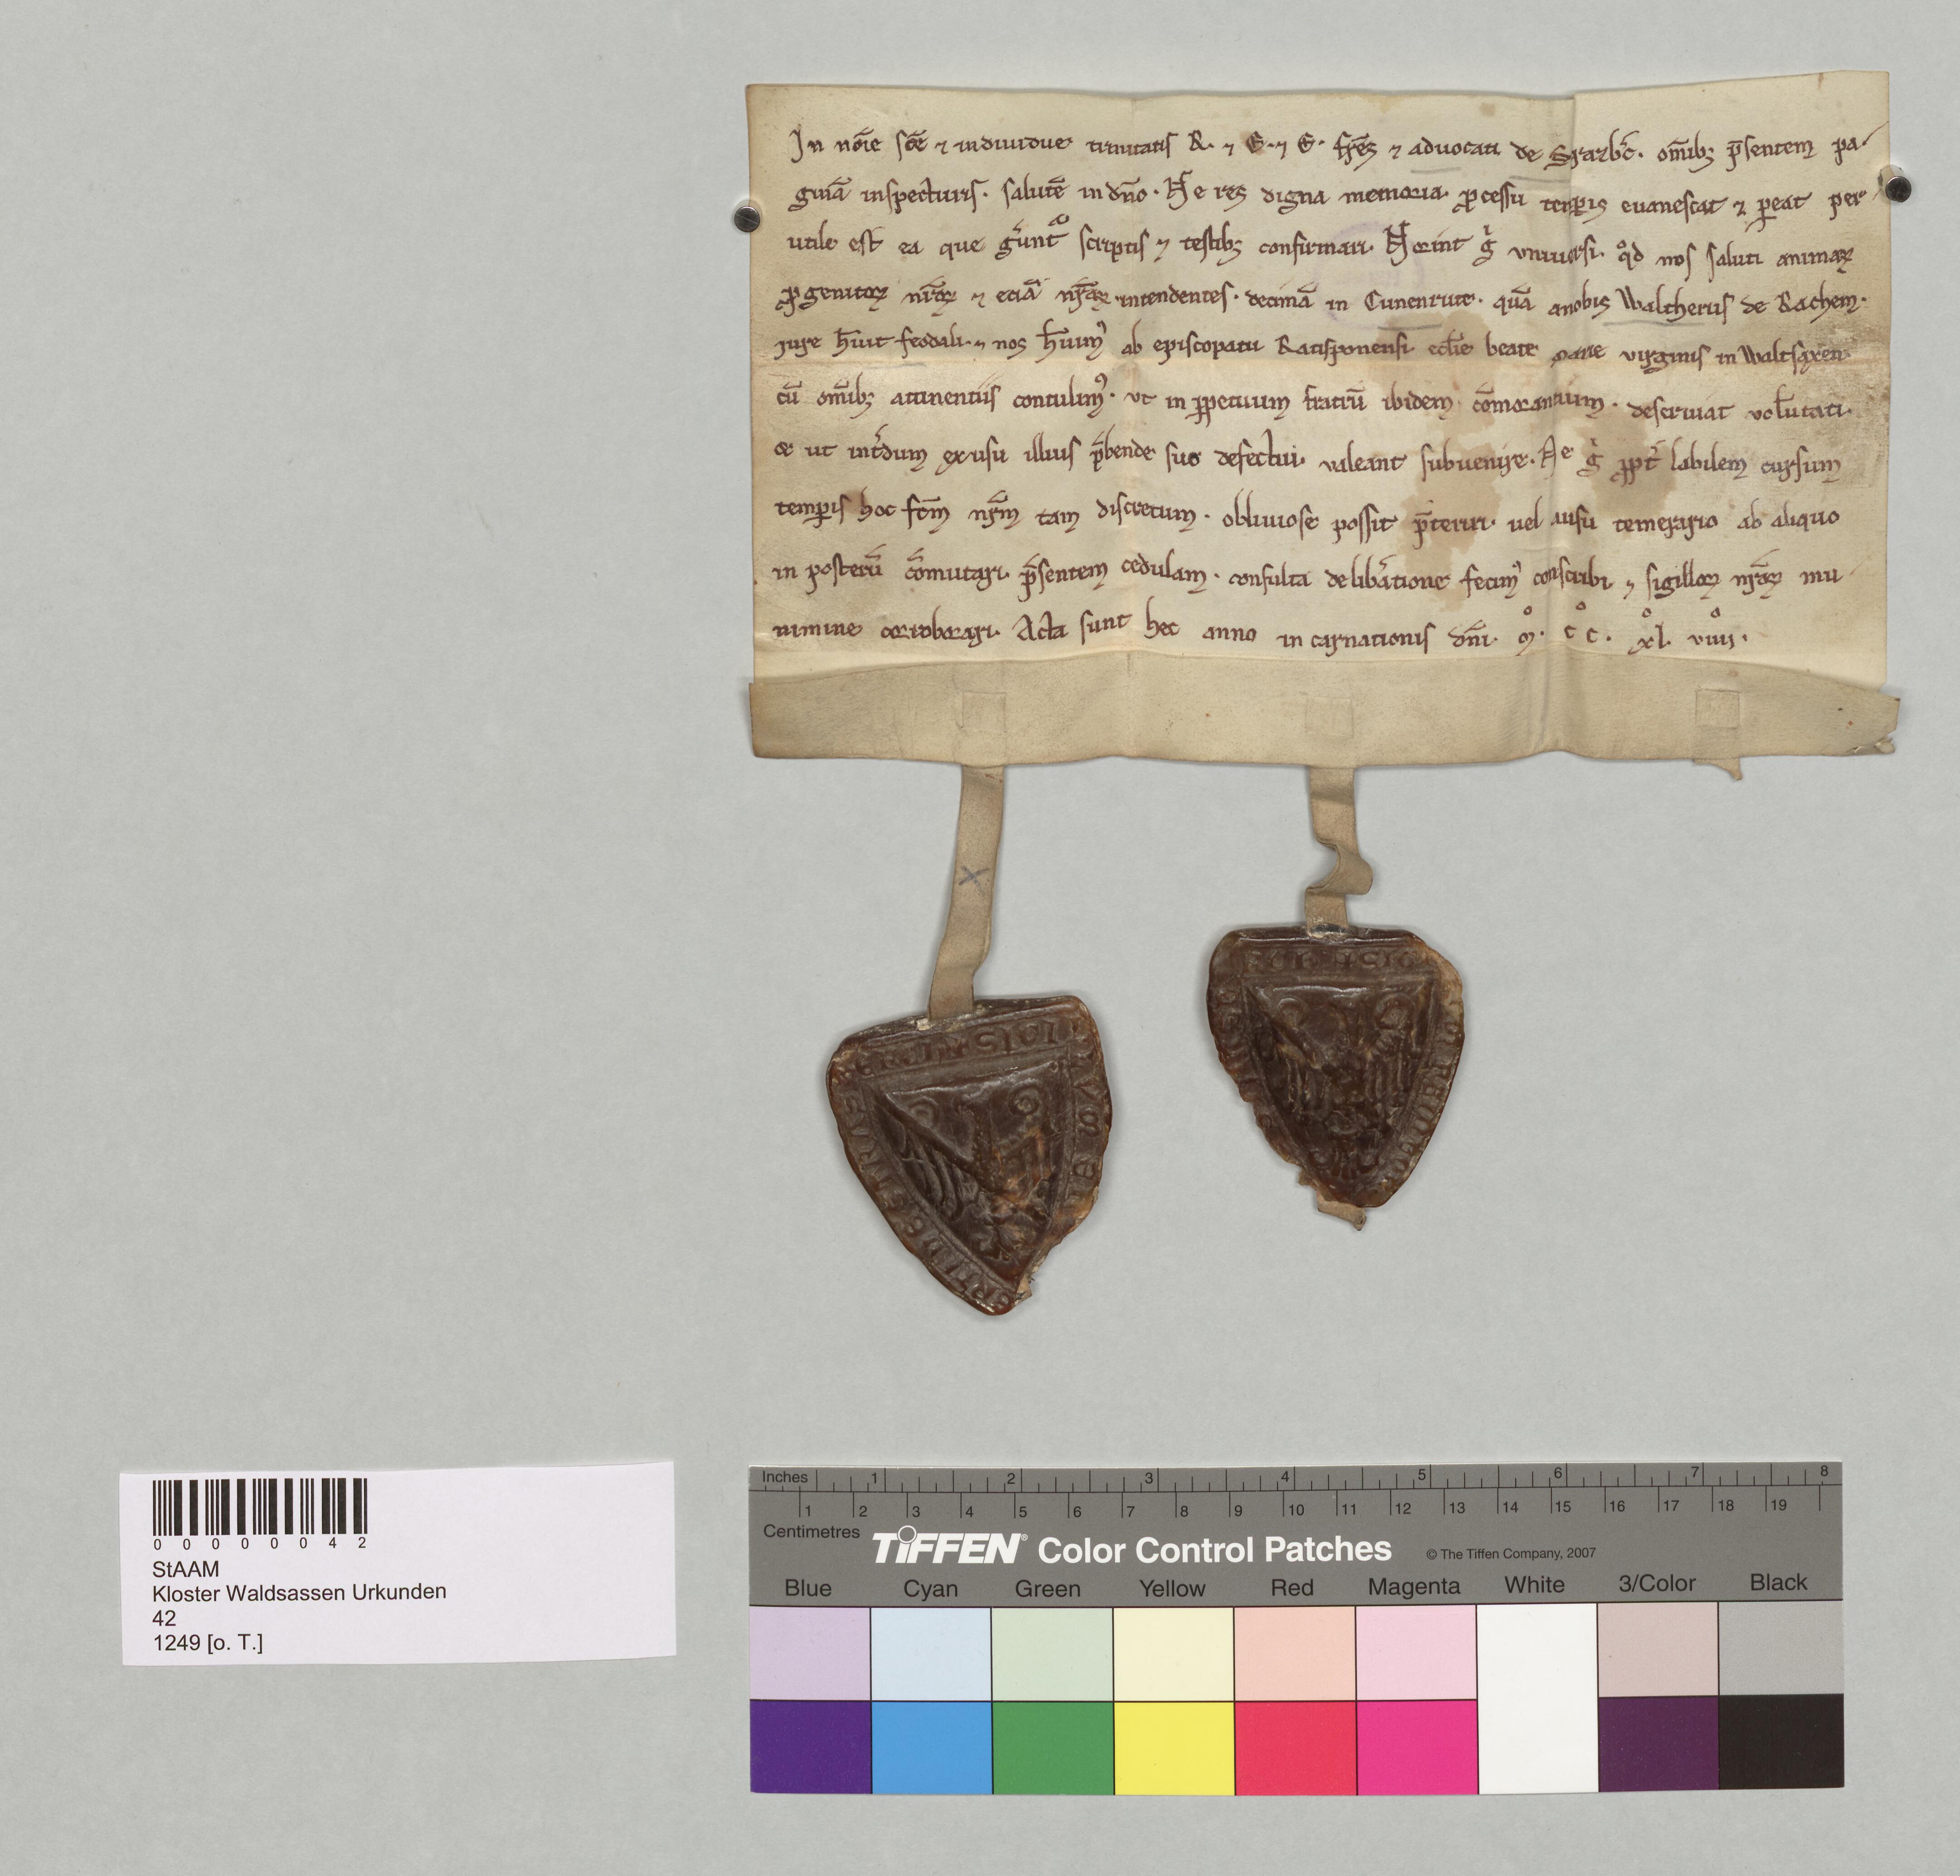 In nōīe sc̄e ⁊ indiuidue trinitatis R. ⁊ E. ⁊ E. fr̄es ⁊ aduocati de Sparb̄c. om̄ib; p̄sentem pa
ginā inspecturis. salutē in dn̄o. Ne res digna memoria. ꝓcessu temꝑis euanescat ⁊ ꝑeat per
utile est ea que gerunt᷑ scriptis ⁊ testib; confirmari. Norint g̊ vniuersi. qd̊ nos saluti animaꝝ
ꝓgenitoꝝ nr̄oꝝ ⁊ eciā nr̄aꝝ intendentes. decimā in Cunenrute. quā anobis Waltherus de Rachem.
iure h̄uit feodali. ⁊ nos h̄uimꝰ ab episcopatu Ratisponensi eccl̄ie beate marie virginis in Waltsaxen
cū om̄ib; attinentiis contulimꝰ. vt in ꝑpetuum fratrū ibidem cōmorantium. deseruiat volūtati.
& ut int̄dum ex usu illius p̄bende suo defectui valeant subuenire. Ne g̊ ꝓpt̄ labilem cursum
temꝑis hoc fc̄m nr̄m tam discretum. obliuiose possit p̄teriri. uel ausu temerario ab aliquo
in posterū cōmutari. p̄sentem cedulam. consulta delib̄atione fecimꝰ conscribi ⁊ sigilloꝝ nr̄oꝝ mu
nimine corroborari. Acta sunt hec anno incarnationis dn̄i. m̊. c̊c. xl̊. viiii̊.
0 0 0 0 0 0 4 2
StAAM
Kloster Waldsassen Urkunden
42
1249 [o. T.]
Inches 1 2 3 4 5 6 7 8
1 2 3 4 5 6 7 8 9 10 11 12 13 14 15 16 17 18 19
Centimetres
TIFFEN® Color Control Patches © The Tiffen Company, 2007
Blue Cyan Green Yellow Red Magenta White 3/Color Black